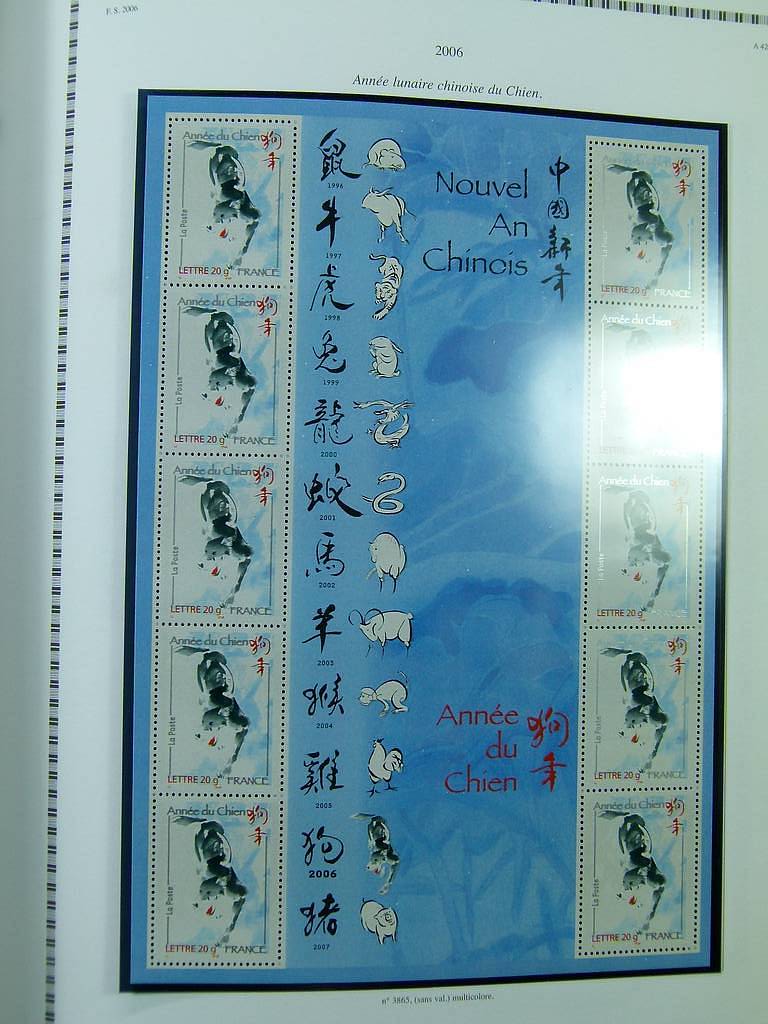 F. S. 2006
2006
A 42
Année lunaire chinoise du Chien.
Année du Chien
狗年
La Poste
LETTRE 20 g
FRANCE
Année du Chien
狗年
La Poste
LETTRE 20 g
FRANCE
Année du Chien
狗年
La Poste
LETTRE 20 g
FRANCE
Année du Chien
狗年
La Poste
LETTRE 20 g
FRANCE
Année du Chien
狗年
La Poste
LETTRE 20 g
FRANCE
鼠
1996
牛
1997
虎
1998
兔
1999
龍
2000
蛇
2001
馬
2002
羊
2003
猴
2004
雞
2005
狗
2006
猪
2007
Nouvel
An
Chinois
中國新年
Année
du
Chien
狗年
Année du Chien
狗年
La Poste
LETTRE 20 g
FRANCE
Année du Chien
Année du Chien
La Poste
LETTRE 20 g
FRANCE
Année du Chien
狗年
La Poste
LETTRE 20 g
FRANCE
Année du Chien
狗年
La Poste
LETTRE 20 g
FRANCE
n° 3865, (sans val.) multicolore.